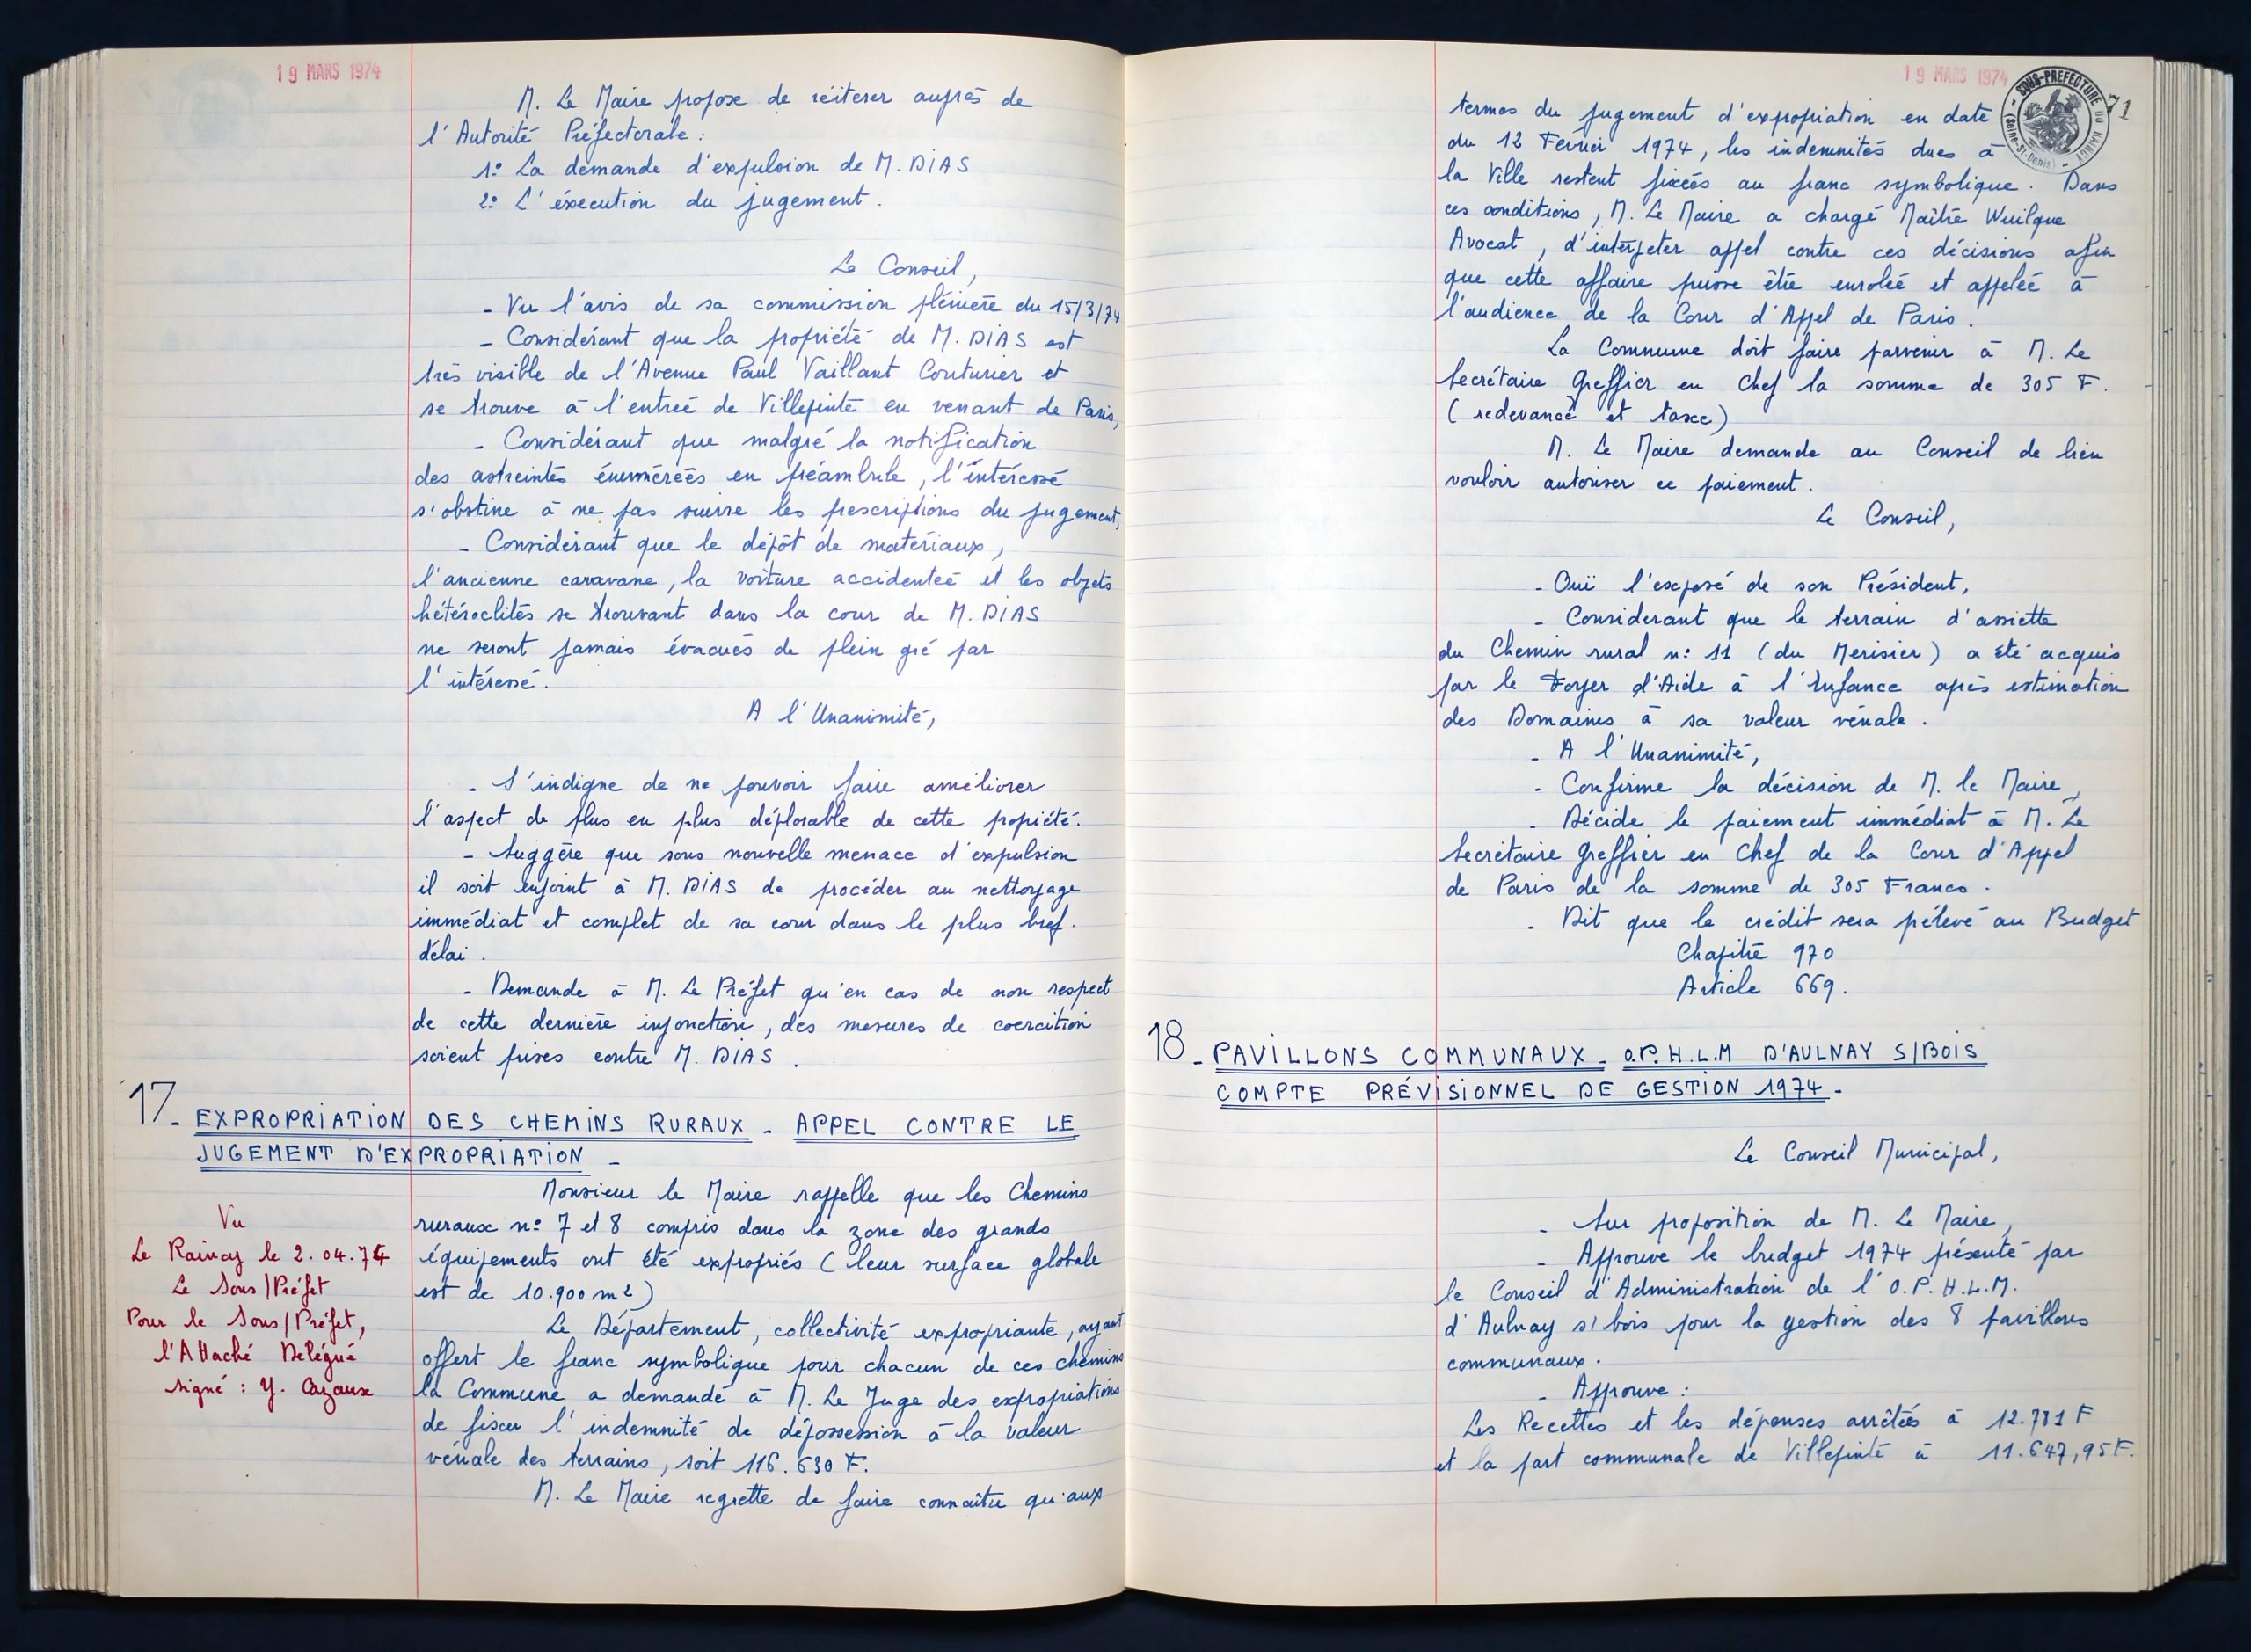 19 MARS 1974
M. Le Maire propose de réiterer auprès de
l'Autorité Préfectorale :
1° La demande d'expulsion de M. DIAS
2° L'éxecution du jugement.
Le Conseil,
- Vu l'avis de sa commission plénière du 15/3/74
- Considérant que la propriété de M. DIAS est
très visible de l'Avenue Paul Vaillant Couturier et
se trouve à l'entrée de Villepinte en venant de Paris,
- Considérant que malgré la notification
des astreintes énumérées en préambule, l'intéressé
s'obstine à ne pas suivre les prescriptions du jugement,
- Considérant que le dépôt de matériaux,
l'ancienne caravane, la voiture accidentée et les objets
hétéroclites se trouvant dans la cour de M. DIAS
ne seront jamais évacués de plein gré par
l'intéressé.
A l'Unanimité,
- S'indigne de ne pouvoir faire améliorer
l'aspect de plus en plus déplorable de cette propiété.
- Suggère que sous nouvelle menace d'expulsion
il soit enjoint à M. DIAS de procéder au nettoyage
immédiat et complet de sa cour dans le plus bref.
délai.
- Demande à M. Le Préfet qu'en cas de non respect
de cette dernière injonction, des mesures de coercition
soient prises contre M. DIAS.
17_ EXPROPRIATION DES CHEMINS RURAUX _ APPEL CONTRE LE
JUGEMENT D'EXPROPRIATION _
Monsieur le Maire rappelle que les Chemins
ruraux n° 7 et 8 compris dans la zone des grands
équipements ont été expropriés (leur surface globale
est de 10.900 m2)
Le Département, collectivité expropriante, ayant
offert le franc symbolique pour chacun de ces chemins
la Commune a demandé à M. Le Juge des expropriations
de fixer l'indemnité de dépossession à la valeur
vénale des terrains, soit 116.630 F.
M. Le Maire regrette de faire connaître qu'aux
Vu
Le Raincy le 2.04.74
Le Sous/Préfet
Pour le Sous/Préfet,
l'Attaché Délégué
signé : Y. Cazaux
19 MARS 1974
SOUS-PREFECTURE DU RAINCY
(Seine-St-Denis)
71
termes du jugement d'expropiation en date
du 12 Février 1974, les indemnités dues à
la Ville restent fixées au franc symbolique. Dans
ces conditions, M. Le Maire a chargé Maître Wuilque
Avocat, d'interjeter appel contre ces décisions afin
que cette affaire puisse être enrolée et appelée à
l'audience de la Cour d'Appel de Paris.
La Commune doit faire parvenir à M. Le
Secrétaire Greffier en Chef la somme de 305 F.
(redevance et taxe)
M. Le Maire demande au Conseil de bien
vouloir autoriser ce paiement.
Le Conseil,
- Ouï l'exposé de son Président,
- Considerant que le terrain d'assiette
du Chemin rural n: 11 (du Merisier) a été acquis
par le Foyer d'Aide à l'Enfance après estimation
des Domaines à sa valeur vénale.
- A l'Unanimité,
- Confirme la décision de M. le Maire,
- Décide le paiement immédiat à M. Le
Secrétaire Greffier en Chef de la Cour d'Appel
de Paris de la somme de 305 Francs.
- Dit que le crédit sera prélevé au Budget
Chapitre 970
Article 669.
18_ PAVILLONS COMMUNAUX_ O.P.H.L.M D'AULNAY S/BOIS
COMPTE PRÉVISIONNEL DE GESTION 1974_
Le Conseil Municipal,
- Sur proposition de M. Le Maire,
- Approuve le budget 1974 présenté par
le Conseil d'Administration de l'O.P.H.L.M.
d'Aulnay s/bois pour la gestion des 8 pavillons
communaux.
- Approuve :
Les Recettes et les dépenses arrêtées à 12.781 F
et la part communale de Villepinte à 11.647,95 F.